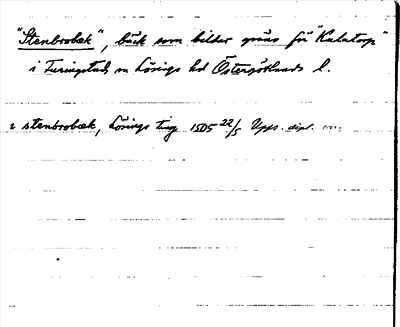 "Stenbrobæk", bäck som bildar gräns för "Kalatorp"
i Furingstad, sn Lösings hd Östergötlands l.
i stenbrobæk, Lösings ting 1505 22/5 Upps. dipl.